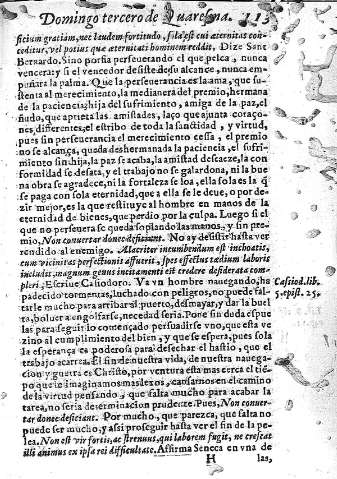 Domingo tercero de Quaresma. 113
ficium gratiam, nec laudem fortitudo, sola est cui aeternitas con-
ceditur, vel potius que aeternitati hominem reddit, Dize Sant
Bernardo. Sino porfia perseuerando el que pelea, nunca
vencera: y si el vencedor desiste de su alcance, nunca em-
puñara la palma. Que la perseuerancia es la ama, que su-
stenta al merecimiento, la medianera del premio, hermana
de la paciencia, hija del sufrimiento, amiga de la paz, el
ñudo, que aprieta las amistades, laço que ajunta coraço-
nes, differentes, el estribo de toda la sanctidad, y virtud,
pues sin perseuerancia el merecimiento cessa, el premio
no se alcança, queda deshermanada la paciencia, el sufri-
miento sin hija, la paz se acaba, la amistad descaeze, la con
formidad se desata, y el trabajo no se galardona, ni la bue
na obra se agradece, ni la fortaleza se loa, ella sola es la q̃
se paga con sola eternidad, que a ella se le deue, o por de-
zir mejor, es la que restituye al hombre en manos de la
eternidad de bienes, que perdio por la culpa. Luego si el
que no perseuera se queda soplando las manos, y sin pre-
mio, Non conuertar donec deficiant. No ay desistir hasta ver
rendido al enemigo. Alacriter intumbendum est inchoatis,
cum vicinitas perfectionis affuerit, spes effectus taedium laboris
includit, magnum genus incitamenti est credere desiderata com-
pleri, Escriue Casiodoro. Va vn hombre nauegando, ha
padecido tormentas, luchado con peligros, no puede fal-
tarle mucho para arribar al puerto, desmayar, y dar la buel
ta, boluer a engolfarse, necedad seria. Pone sin duda espue
las para seguir lo començado persuadirse vno, que esta ve
zino al cumplimiento del bien, y que se espera, pues sola
la esperança es poderosa para desechar el hastio, que el
trabajo acarrea. El fin de nuestra vida, de nuestra nauega-
cion y guerra es Christo, por ventura esta mas cerca el tiẽ-
po que le imaginamos mas lexos, cansarnos en el camino
de la virtud pensando, que falta mucho para acabar la
tarea, no seria determinacion prudente. Pues, Non conuer-
tar donec deficiant. Por mucho, que parezca, que falta no
puede ser mucho, y assi proseguir hasta ver el fin de la pe-
lea. Non est vir fortis, ac strenuus, qui laborem fugit, ne crescat
illi animus ex ipsa rei difficultate. Affirma Seneca en vna de
H las,
Casiod. lib.
5. epist. 25.